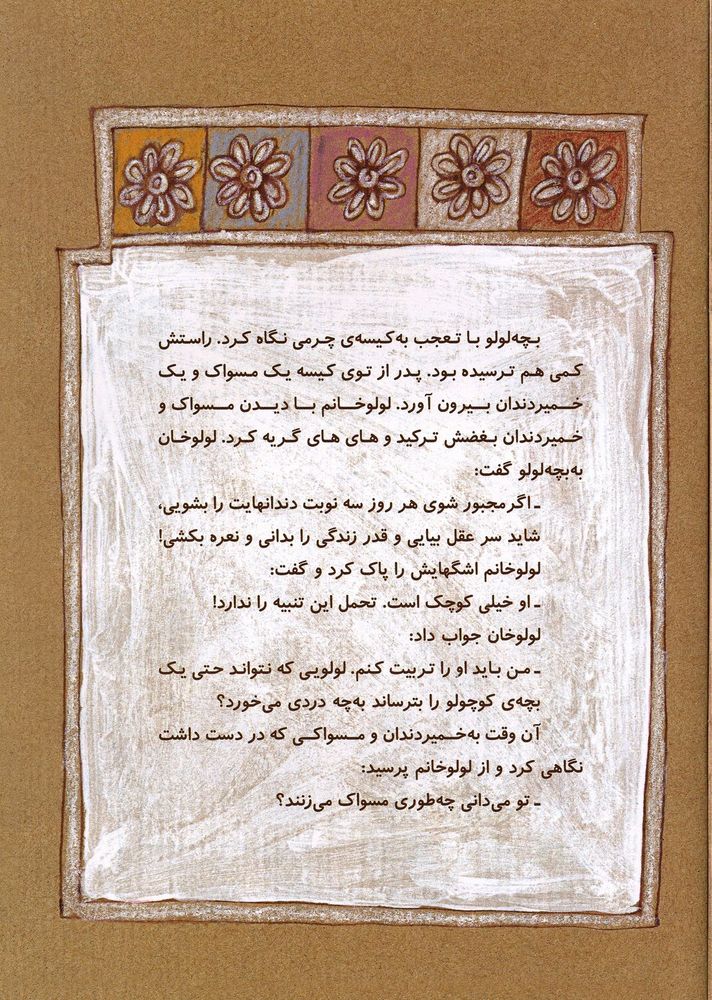 بچه‌لولو با تعجب به‌کیسه‌ی چرمی نگاه کرد. راستش
کمی هم ترسیده بود. پدر از توی کیسه یک مسواک و یک
خمیردندان بیرون آورد. لولوخانم با دیدن مسواک و
خمیردندان بغضش ترکید و های های گریه کرد. لولوخان
به‌بچه‌لولو گفت:
ـ اگرمجبور شوی هر روز سه نوبت دندانهایت را بشویی،
شاید سر عقل بیایی و قدر زندگی را بدانی و نعره بکشی!
لولوخانم اشگهایش را پاک کرد و گفت:
ـ او خیلی کوچک است. تحمل این تنبیه را ندارد!
لولوخان جواب داد:
ـ من باید او را تربیت کنم. لولویی که نتواند حتی یک
بچه‌ی کوچولو را بترساند به‌چه دردی می‌خورد؟
آن وقت به‌خمیردندان و مسواکی که در دست داشت
نگاهی کرد و از لولوخانم پرسید:
ـ تو می‌دانی چه‌طوری مسواک می‌زنند؟